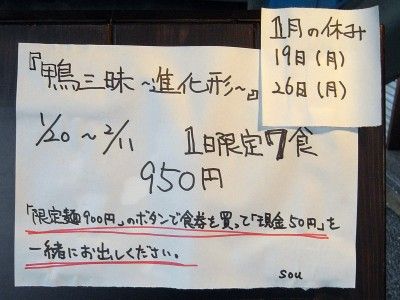 『鴨三昧~進化形~』
1/20~2/11 1日限定7食
950円
「限定麺900円」のボタンで食券を買って「現金50円」を
一緒にお出しください。
sou
1月の休み
19日(月)
26日(月)